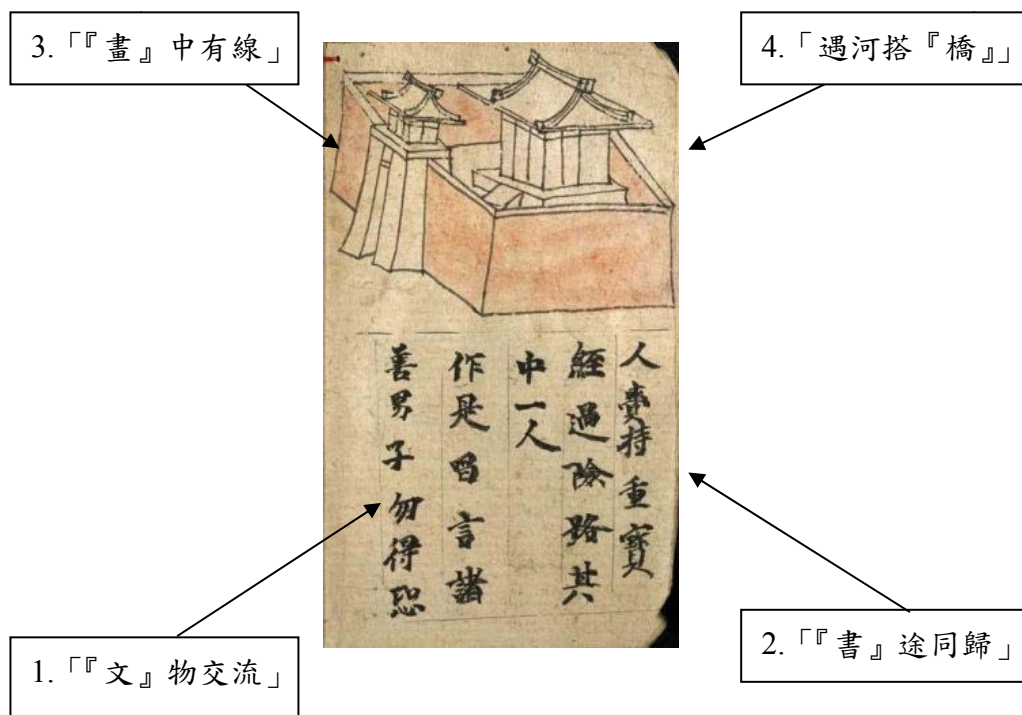 3.「『畫』中有線」
4.「遇河搭『橋』」
人賷持重寶
經過險路其
中一人
作是唱言諸
善男子勿得恐
1.「『文』物交流」
2.「『書』途同歸」